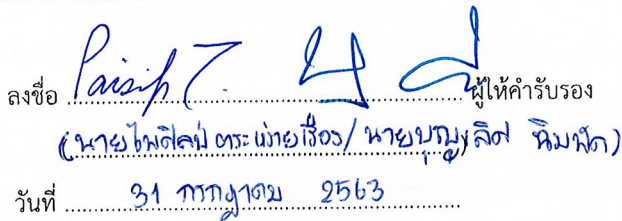 ลงชื่อ Paisip T. ผู้ให้คำรับรอง
(นายไพศิลป์ ตระหง่ายเรือง/นายบุญเลิศ นิมพัด)
วันที่ 31 กรกฎาคม 2563